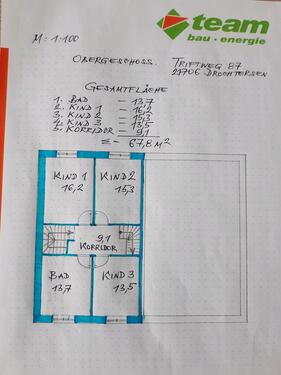 team
bau • energie
M: 1:100
OBERGESCHOSS. TRIFTWEG 87
21706 DROCHTERSEN
GESAMTFLÄCHE
1. BAD – 13,7
2. KIND 1 – 16,2
3. KIND 2 – 15,3
4. KIND 3 – 13,5
5. KORRIDOR – 9,1
Σ= 67,8 M²
KIND 1 KIND 2
16,2 15,3
9,1
KORRIDOR
BAD KIND 3
13,7 13,5